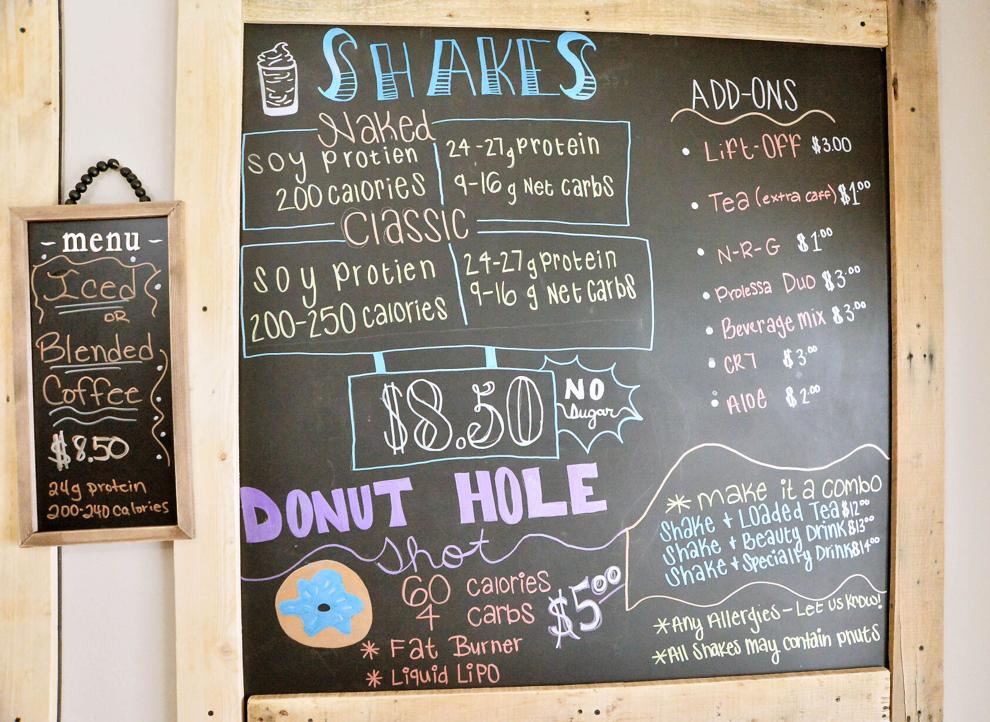 menu
Iced
OR
Blended
Coffee
$8.50
24g protein
200-240 calories
SHAKES
Naked
soy protien
200 calories
24-27g protein
9-16 g Net carbs
Classic
soy protien
200-250 calories
24-27g protein
9-16 g Net carbs
$8.50
NO
sugar
DONUT HOLE
shot
60 calories
4 carbs
$5.00
* Fat Burner
* Liquid LiPO
ADD-ONS
• Lift-Off $3.00
• Tea (extra caff) $1.00
• N-R-G $1.00
• Prolessa Duo $3.00
• Beverage mix $3.00
• CR7 $3.00
• Aloe $2.00
* make it a combo
Shake + Loaded Tea $12.00
Shake + Beauty Drink $13.00
Shake + Specialty Drink $14.00
* Any Allergies - Let us know!
* All shakes may contain pnuts